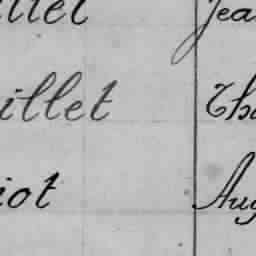 illet Jea
illet Tho
iot Aug